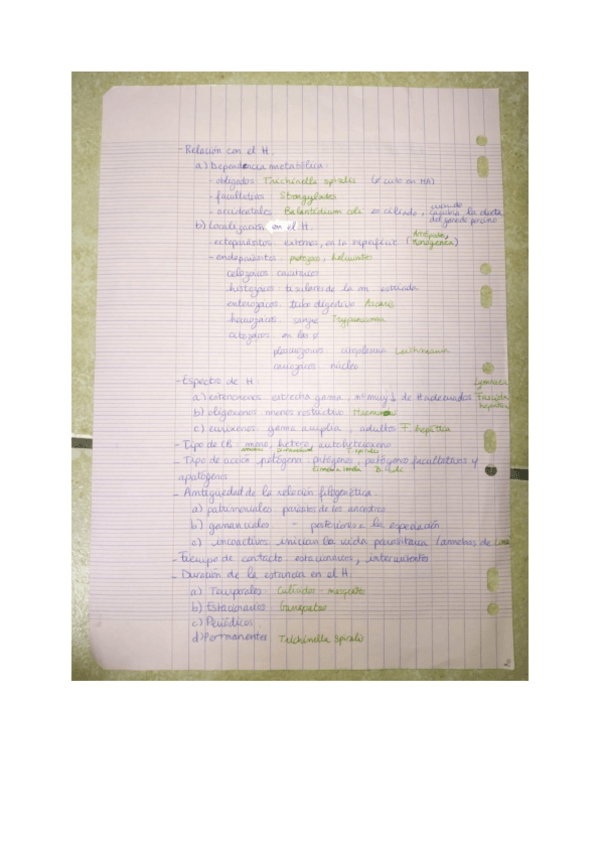 - Relación con el H.
a) Dependencia metabólica:
- obligados Trichinella spiralis (ø ciclo en MA)
- facultativos Strongylodes
- accidentales Balantidium coli en cilindo, cuando cambia la dieta del ganado porcino
b) Localización en el H.
- ectoparásitos: externos, en la superficie (Artrópodos, Monogenea)
- endoparásitos protozoos, helmintos
celozoicos cavitarios
histozoicos: tisulares de la m. estriada
enterozoicos: tubo digestivo Ascaris
hemozoicos: sangre Trypanosoma
citozoicos en las ø
plasmozoicos citoplasma Leishmania
cariozoicos núcleo
- Espectros de H: Lymnaea
a) estenoxenos: estrecha gama, nº muy ↓ de H adecuados Fasciola hepatica
b) oligoxenos: menos restrictivo
c) eurixenos: gama amplia, adultos F. hepática
- Tipo de CB: mono, hetero, autoheteroxeno
T. spiralis
- Tipo de acción patógena: patógenos, patógeno facultativos y
B. coli
apatógenos
- Antigüedad de la relación filogenética:
a) patrimoniales: parásitos de los ancestros
b) gananciales - posteriores a la especiación
c) incoactivos: inician la vida parasitaria (amebas de
- Tiempo de contacto: estacionarios, intermitentes
- Duración de la estancia en el H:
a) Temporales: Culícidos - mosquito
b) Estacionales:
c) Periódicos.
d) Permanentes Trichinella Spiralis
2